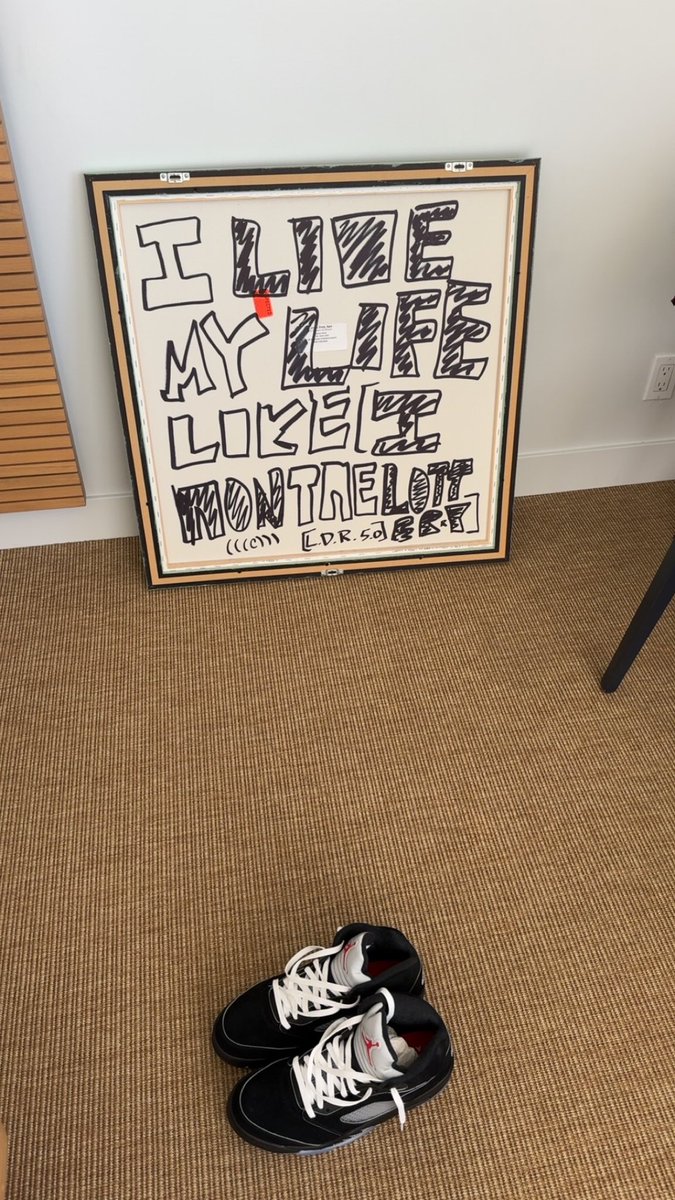 I LIVE
MY LIFE
LIKE I
WON THE LOTT
ERY
[L.D.R. 5.0]